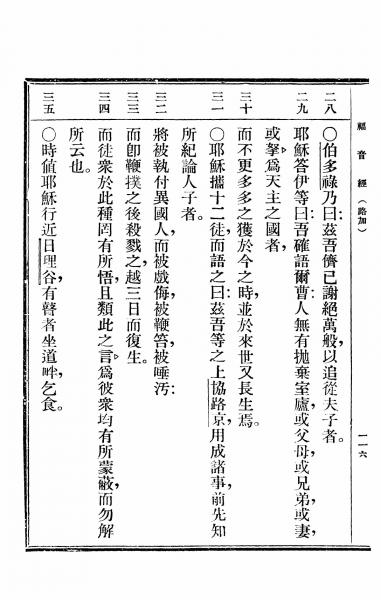 福音經（路加）
一一六
二八
〇伯多祿乃曰：茲吾儕已謝絕萬般以追從夫子者。
二九
耶穌答伊等曰：吾確語爾曹人無有拋棄室廬或父母，或兄弟，或妻，
或孥，爲天主之國者，
三十
而不更多多之獲於今之時，並於來世又長生焉。
三一
〇耶穌攜十二徒，而語之曰：茲吾等之上協路京，用成諸事，前先知
所紀論人子者。
三二
將被執付異國人，而被戲侮被鞭笞被唾汚：
三三
而卽鞭撲之後殺戮之，越三日而復生。
三四
而徒衆於此種罔有所悟，且類此之言，爲彼衆均有所蒙蔽，而勿解
所云也。
三五
〇時値耶穌行近日理谷，有瞽者坐道畔，乞食。